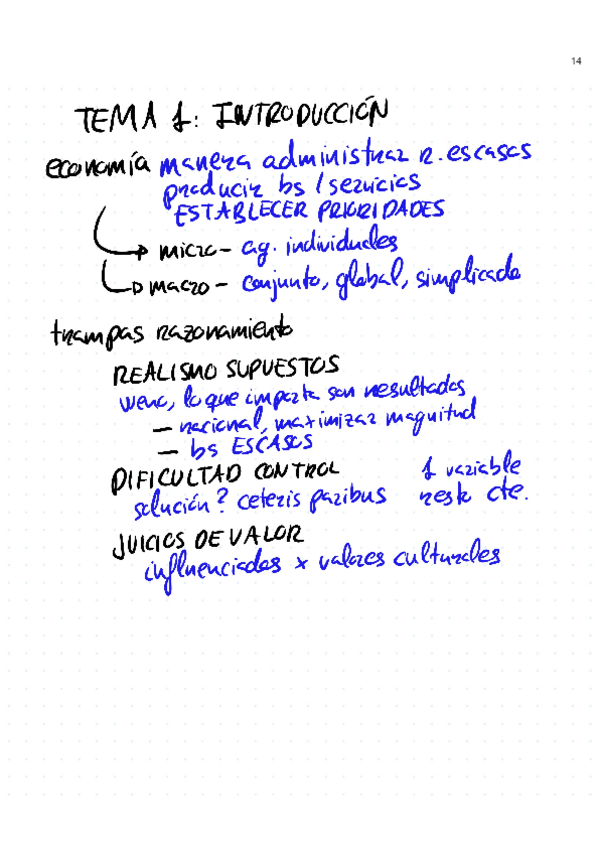 14
TEMA 1: INTRODUCCIÓN
economía manera administrar r. escasos
producir bs / servicios
ESTABLECER PRIORIDADES
micro - ag. individuales
macro - conjunto, global, simplicado
trampas razonamiento
REALISMO SUPUESTOS
weno, lo que importa son resultados
- racional, maximizar magnitud
- bs ESCASOS
DIFICULTAD CONTROL 1 variable
solución? ceteris paribus resto cte.
JUICIOS DE VALOR
influenciados x valores culturales